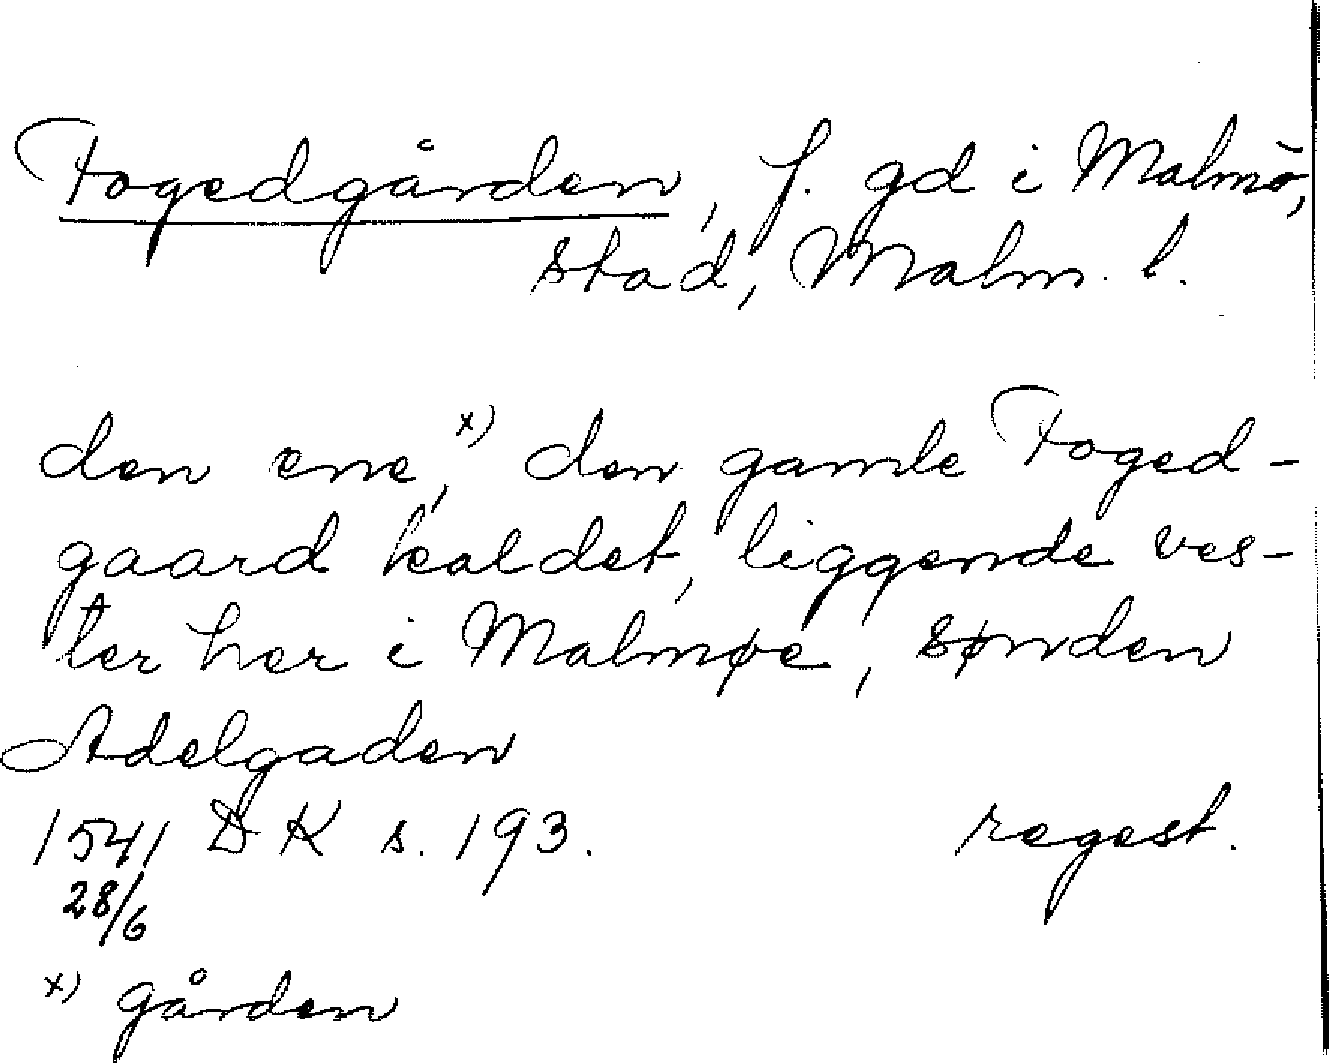 Fogedgården, f. gd i Malmö,
stad, Malm. l.
den ene,x) den gamle Foged-
gaard kaldet, liggende ves-
ter her i Malmøe, sønden
Adelgaden
1541 DK s. 193. regest.
28/6
x) gården